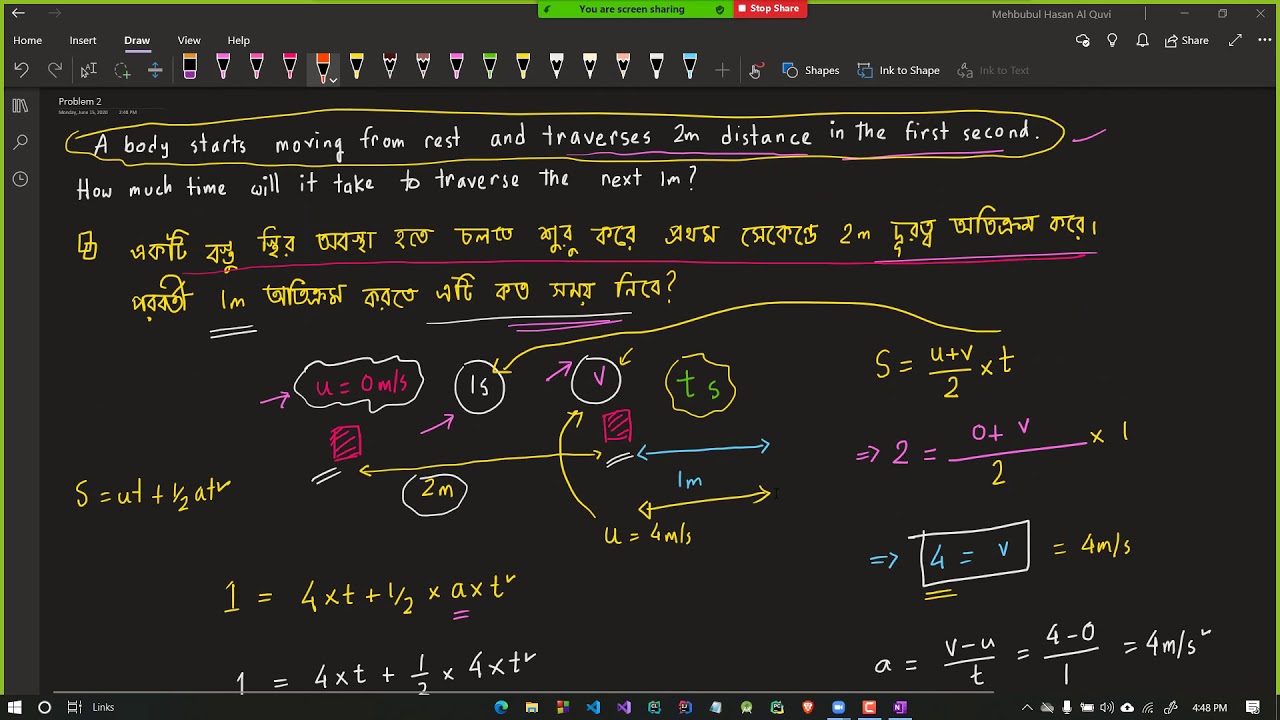 You are screen sharing Stop Share
Mehbubul Hasan Al Quvi
Home Insert Draw View Help
Share
Shapes Ink to Shape Ink to Text
Problem 2
Monday, June 15, 2020 2:48 PM
A body starts moving from rest and traverses 2m distance in the first second.
How much time will it take to traverse the next 1m?
একটি বস্তু স্থির অবস্থা হতে চলতে শুরু করে প্রথম সেকেন্ডে 2m দূরত্ব অতিক্রম করে।
পরবর্তী 1m অতিক্রম করতে এটি কত সময় নিবে?
u = 0 m/s 1s v t s
S = (u+v)/2 × t
2m 1m
⇒ 2 = (0+v)/2 × 1
S = ut + 1/2 at²
u = 4m/s
⇒ 4 = v = 4m/s
1 = 4×t + 1/2 × a×t²
a = (v-u)/t = (4-0)/1 = 4m/s²
1 = 4×t + 1/2 × 4×t²
Links
4:48 PM